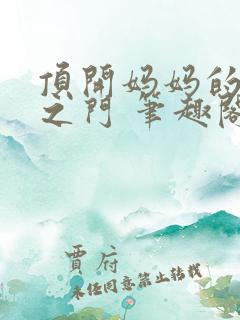 頂開妈妈的
之门 笔趣阁
賈府
未经同意禁止转载